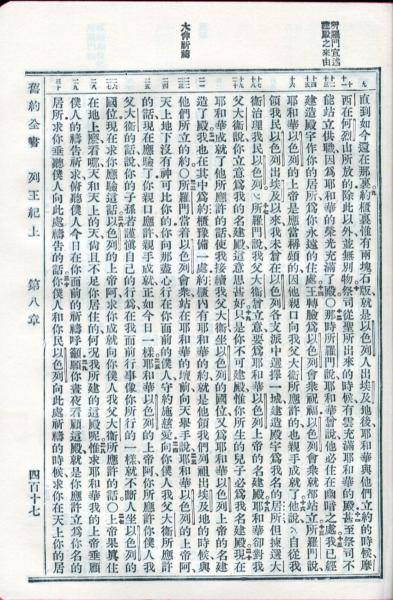 所羅門宣述
建殿之來由
直到如今還在那裏約櫃裏惟有兩塊石版就是以色列人出埃及地後耶和華與他們立約的時候摩
西在何烈山所放的除此以外並無別物祭司從聖所出來的時候有雲充滿耶和華的殿甚至祭司不
能站立供職因爲耶和華的榮光充滿了殿○那時所羅門說耶和華曾說他必住在幽暗之處我已經
建造殿宇作你的居所爲你永遠的住處王轉臉爲以色列會衆祝福以色列會衆就都站立所羅門說
耶和華以色列的上帝是應當稱頌的因他親口向我父大衛所應許的也親手成就了他說自從我
領我民以色列出埃及以來我未曾在以色列各支派中選擇一城建造殿宇爲我名的居所但揀選大
衛治理我民以色列所羅門說我父大衛曾立意要爲耶和華以色列上帝的名建殿耶和華卻對我
父大衛說你立意爲我的名建殿這意思甚好只是你不可建殿惟你所生的兒子必爲我名建殿現在
耶和華成就了他所應許的話使我接續我父大衛坐以色列的國位又爲耶和華以色列上帝的名建
造了殿我也在其中爲約櫃豫備一處約櫃內有耶和華的約就是他領我們列祖出埃及地的時候與
他們所立的約○所羅門當着以色列會衆站在耶和華的壇前向天舉手說耶和華以色列的上帝阿
天上地下沒有神可比你的你向那盡心行在你面前的僕人守約施慈愛向你僕人我父大衛所應許
的話現在應驗了你親口應許親手成就正如今日一樣耶和華以色列的上帝阿你所應許你僕人我
父大衛的話說你的子孫若謹愼自己的行爲在我面前行事像你所行的一樣就不斷人坐以色列的
國位現在求你應驗這話以色列的上帝阿求你成就向你僕人我父大衛所應許的話○上帝果眞住
在地上麽看哪天和天上的天尚且不足你居住的何況我所建的這殿呢惟求耶和華我的上帝垂顧
僕人的禱告祈求俯聽僕人今日在你面前的祈禱呼籲願你晝夜看顧這殿就是你應許立爲你名的
居所求你垂聽僕人向此處禱告的話你僕人和你民以色列向此處祈禱的時候求你在天上你的居
舊約全書 列王紀上 第八章 四百十七